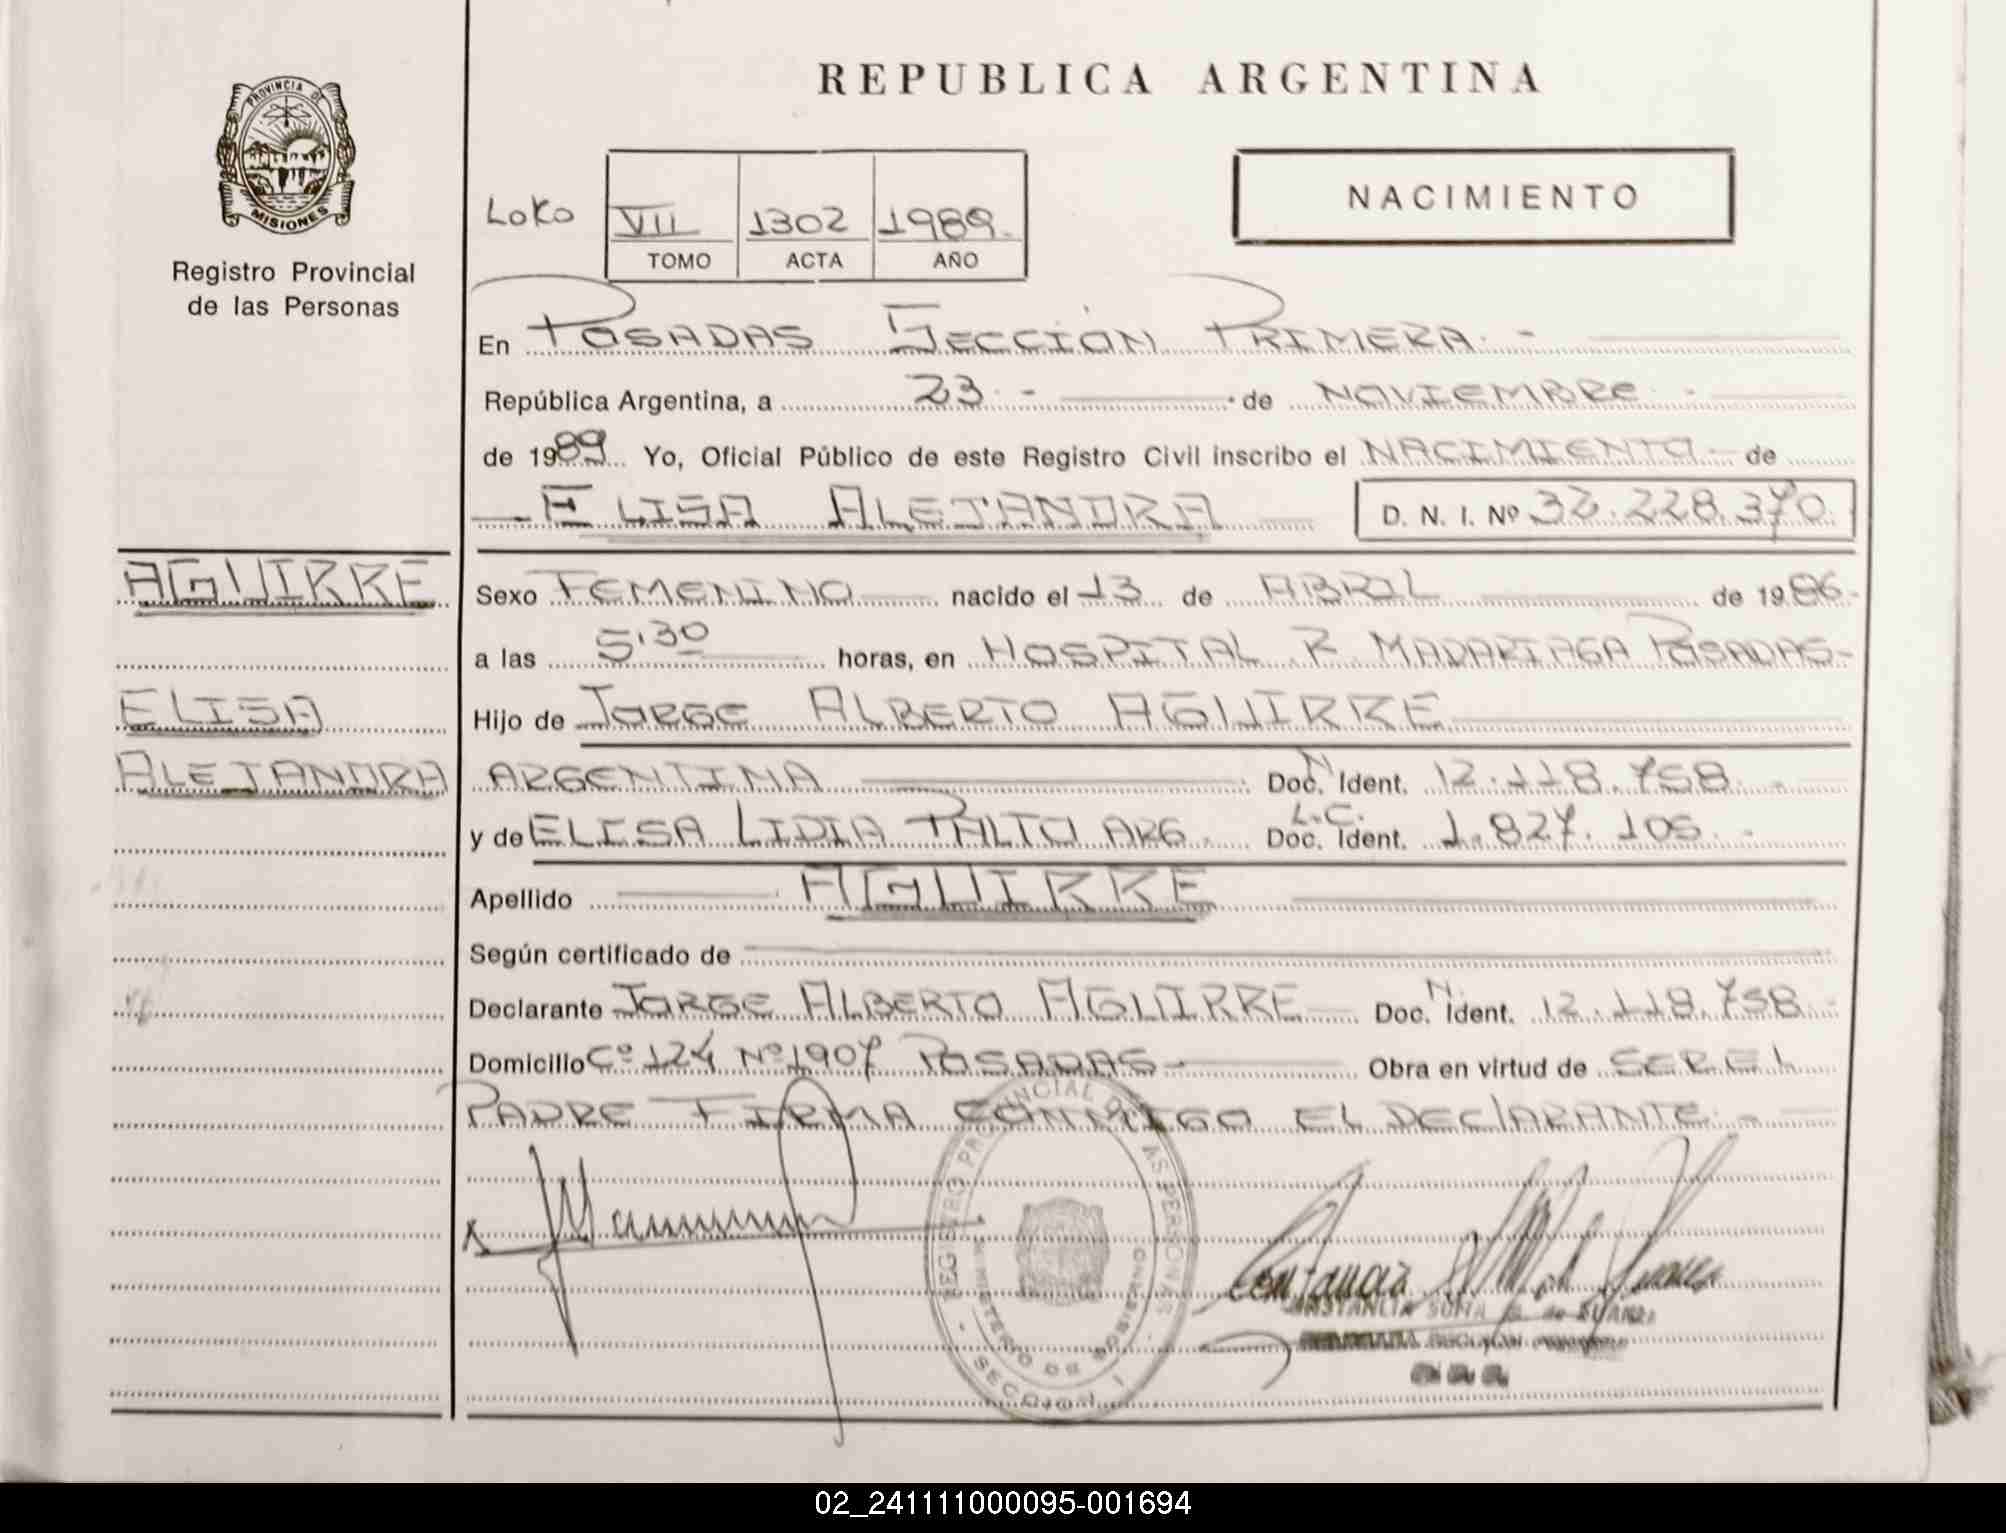 REPUBLICA ARGENTINA
PROVINCIA DE
MISIONES
Registro Provincial
de las Personas
NACIMIENTO
Loko
VII 1302 1989.
TOMO ACTA AÑO
En POSADAS SECCIÓN PRIMERA.-
República Argentina, a 23.- de NOVIEMBRE.-
de 1989 Yo, Oficial Público de este Registro Civil inscribo el NACIMIENTO - de
ELISA ALEJANDRA D. N. I. Nº 32.228.370.
AGUIRRE
ELISA
ALEJANDRA
Sexo FEMENINO nacido el 13 de ABRIL de 1986.-
a las 5'30 horas, en HOSPITAL R MADARIAGA POSADAS-
Hijo de JORGE ALBERTO AGUIRRE
ARGENTINA Doc. N Ident. 12.118.758.-
y de ELISA LIDIA ARG. L.C. Doc. Ident. 1.827.105.-
Apellido AGUIRRE
Según certificado de
Declarante JORGE ALBERTO AGUIRRE Doc. N. Ident. 12.118.758-
Domicilio Cº 124 Nº 1907 POSADAS- Obra en virtud de SER EL
PADRE FIRMA CONMIGO EL DEClARANTE.-
REGISTRO PROVINCIAL DE LAS PERSONAS
MINISTERIO DE GOBIERNO
SECCION 1
CONSTANCIA SOFIA de SUAREZ
02_241111000095-001694